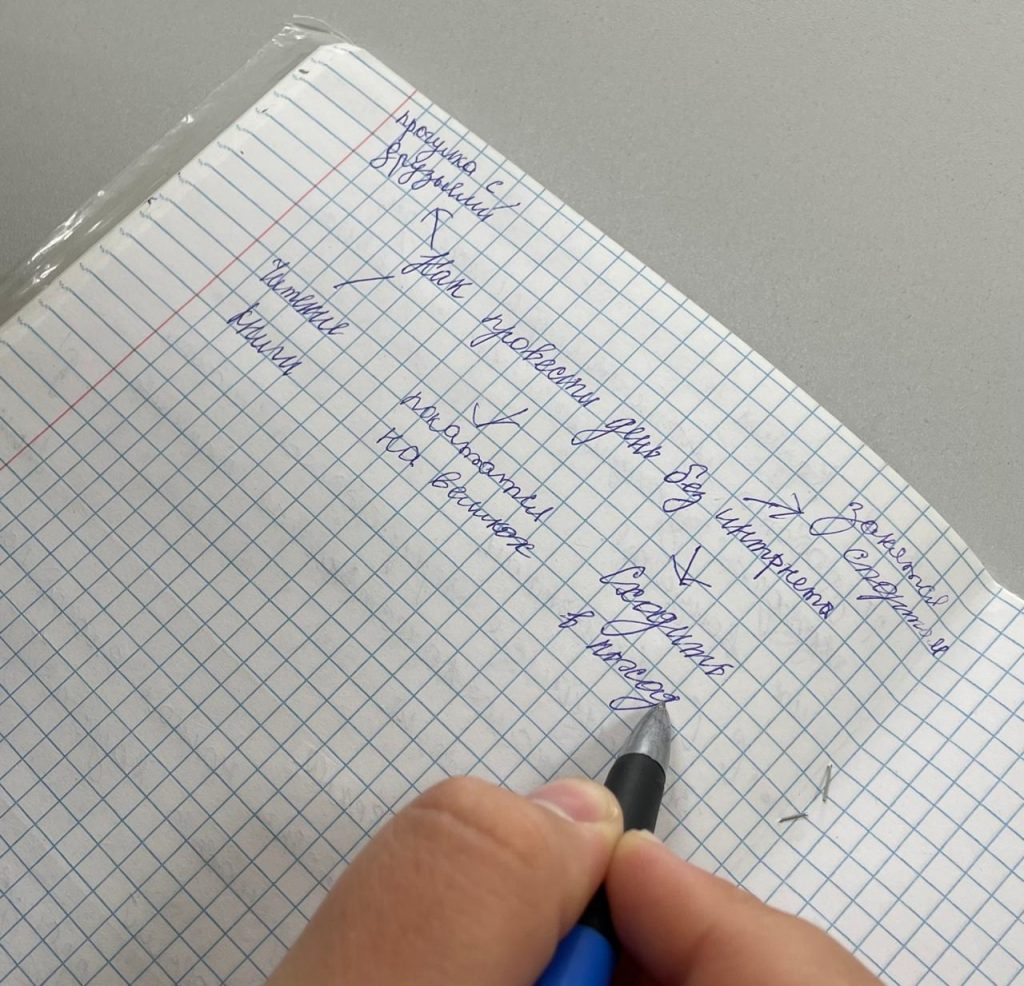 прогулка с
друзьями
Как провести день без интрнета
Чтение
книги
покататся
на великах
Сходить
в поход
занятся
спортом